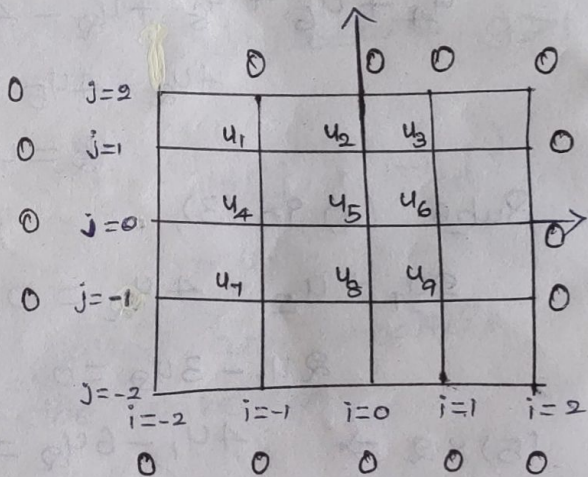 0 0 0 0
0 j=2
0 j=1 u1 u2 u3 0
0 j=0 u4 u5 u6 0
0 j=-1 u7 u8 u9 0
j=-2
i=-2 i=-1 i=0 i=1 i=2
0 0 0 0 0